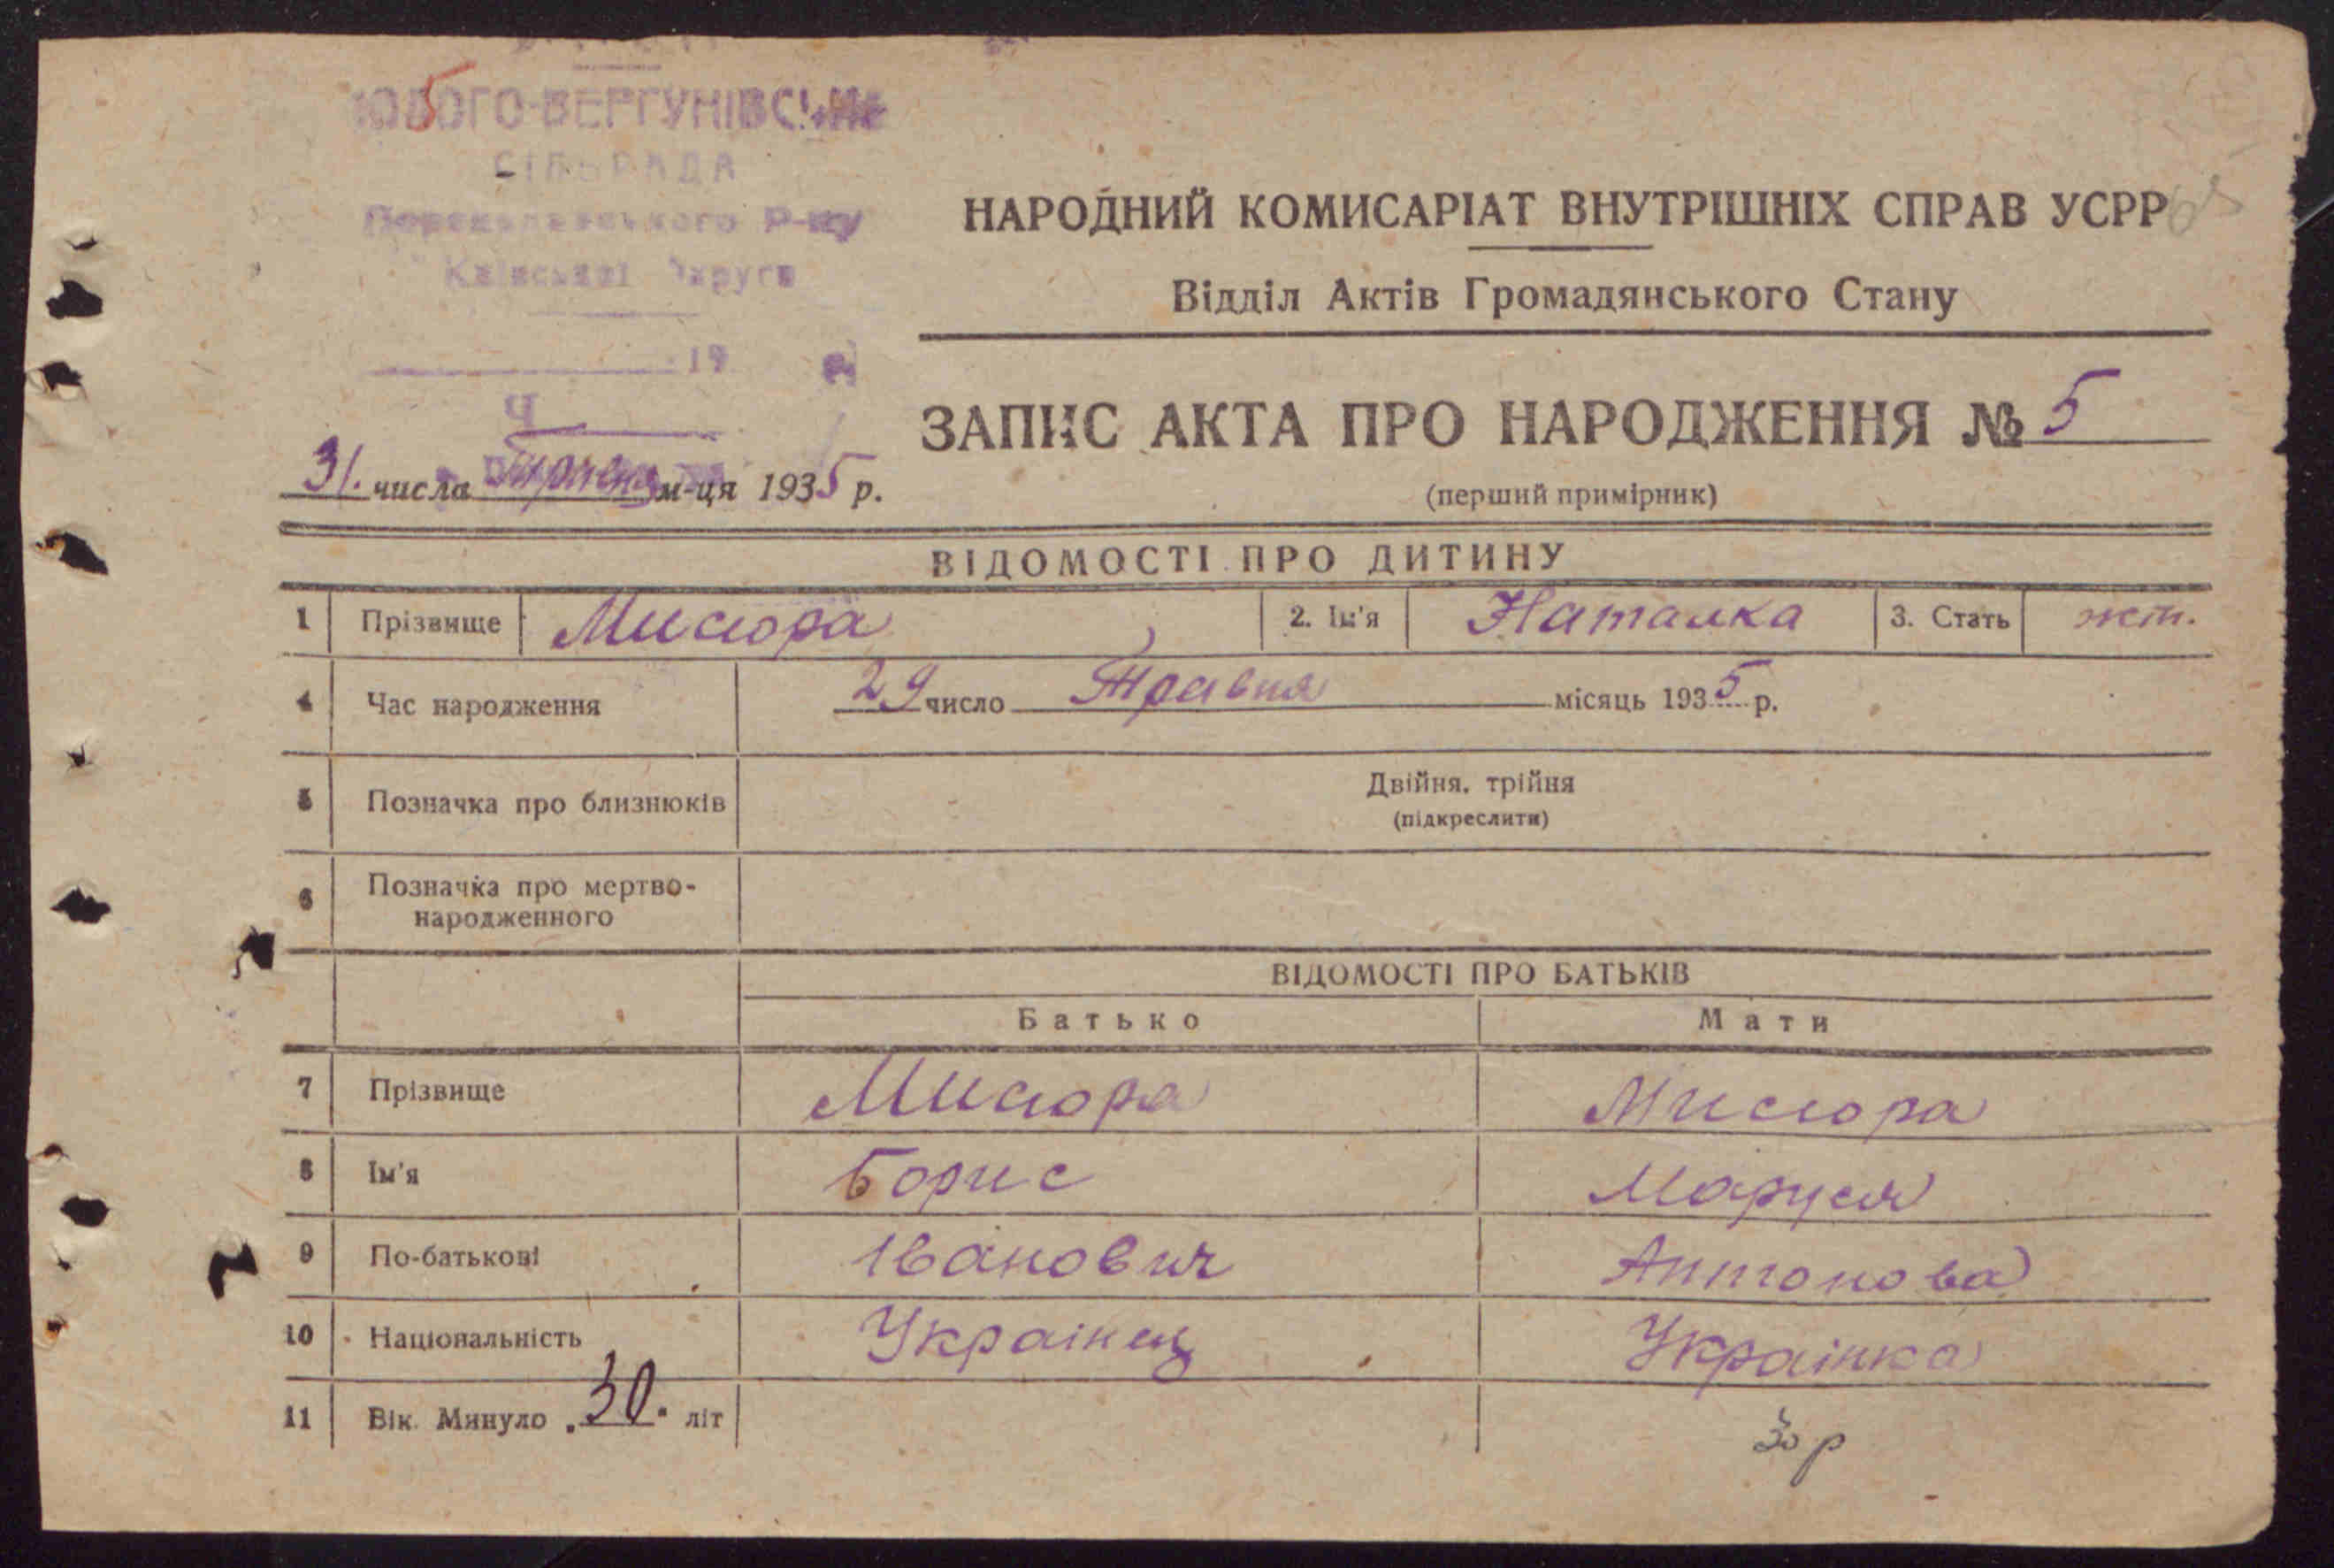 5
СІЛЬРАДА
Р-ну
19
Ч
НАРОДНИЙ КОМИСАРІАТ ВНУТРІШНІХ СПРАВ УСРР
Відділ Актів Громадянського Стану
ЗАПИС АКТА ПРО НАРОДЖЕННЯ № 5
31. числа м-ця 1935 р.
(перший примірник)
ВІДОМОСТІ ПРО ДИТИНУ
1 Прізвище Мисюра 2. Ім'я Наталка 3. Стать жін.
4 Час народження 29 число Травня місяць 1935 р.
5 Позначка про близнюків Двійня, трійня
(підкреслити)
6 Позначка про мертво-
народженного
ВІДОМОСТІ ПРО БАТЬКІВ
Батько Мати
7 Прізвище Мисюра Мисюра
8 Ім'я Борис Маруся
9 По-батькові Іванович Антонова
10 Національність Украінец Украінка
11 Вік. Минуло 30 літ 30 р